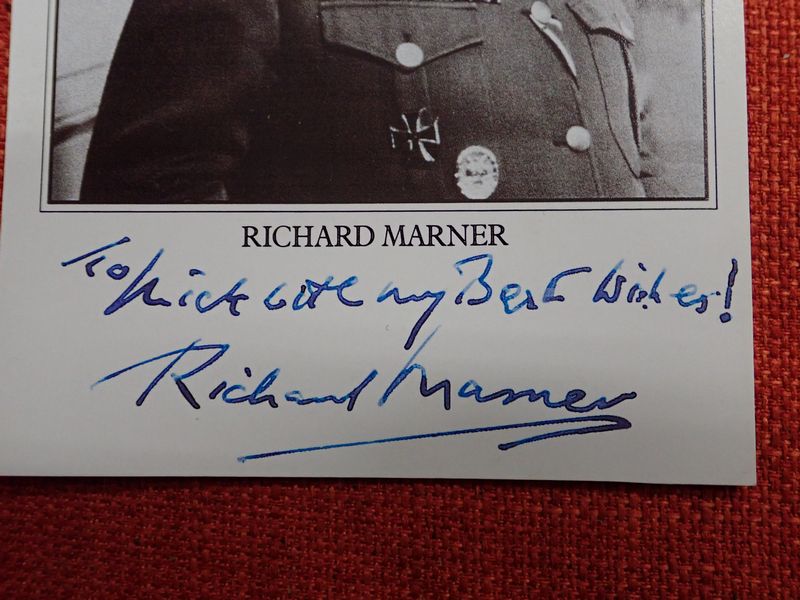 RICHARD MARNER
To Nick with my Best Wishes!
Richard Marner